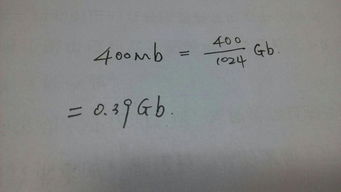 400mb = 400/1024 Gb.
= 0.39Gb.